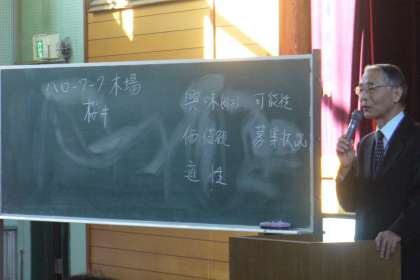 ハローワーク木場
桜井
興味 可能性
価値観 募集状況
適性